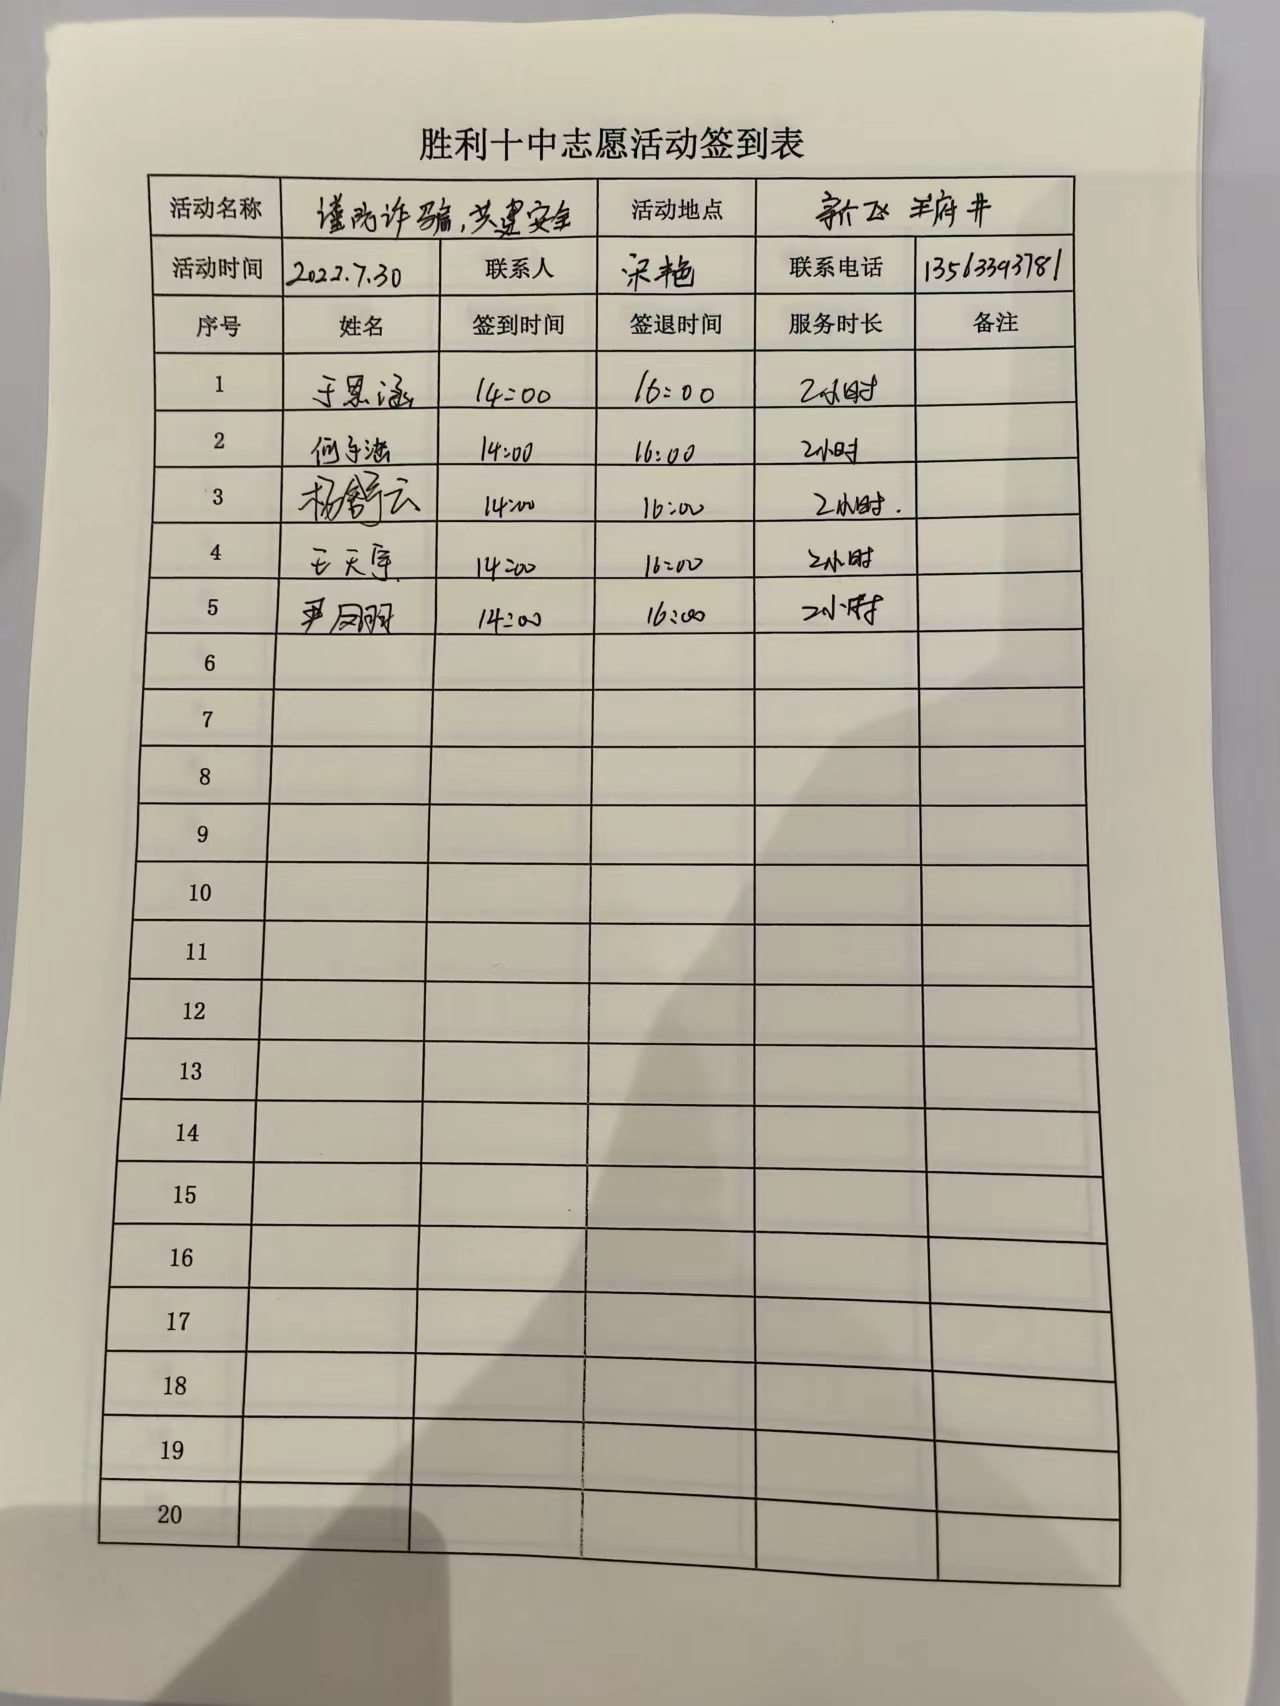 胜利十中志愿活动签到表
活动名称 谨防诈骗,共建安全 活动地点 新飞 王府井
活动时间 2022.7.30 联系人 宋艳 联系电话 13563393781
序号 姓名 签到时间 签退时间 服务时长 备注
1 于恩涵 14:00 16:00 2小时
2 何子涵 14:00 16:00 2小时
3 杨舒云 14:00 16:00 2小时.
4 王天宇 14:00 16:00 2小时
5 尹 14:00 16:00 2小时
6
7
8
9
10
11
12
13
14
15
16
17
18
19
20